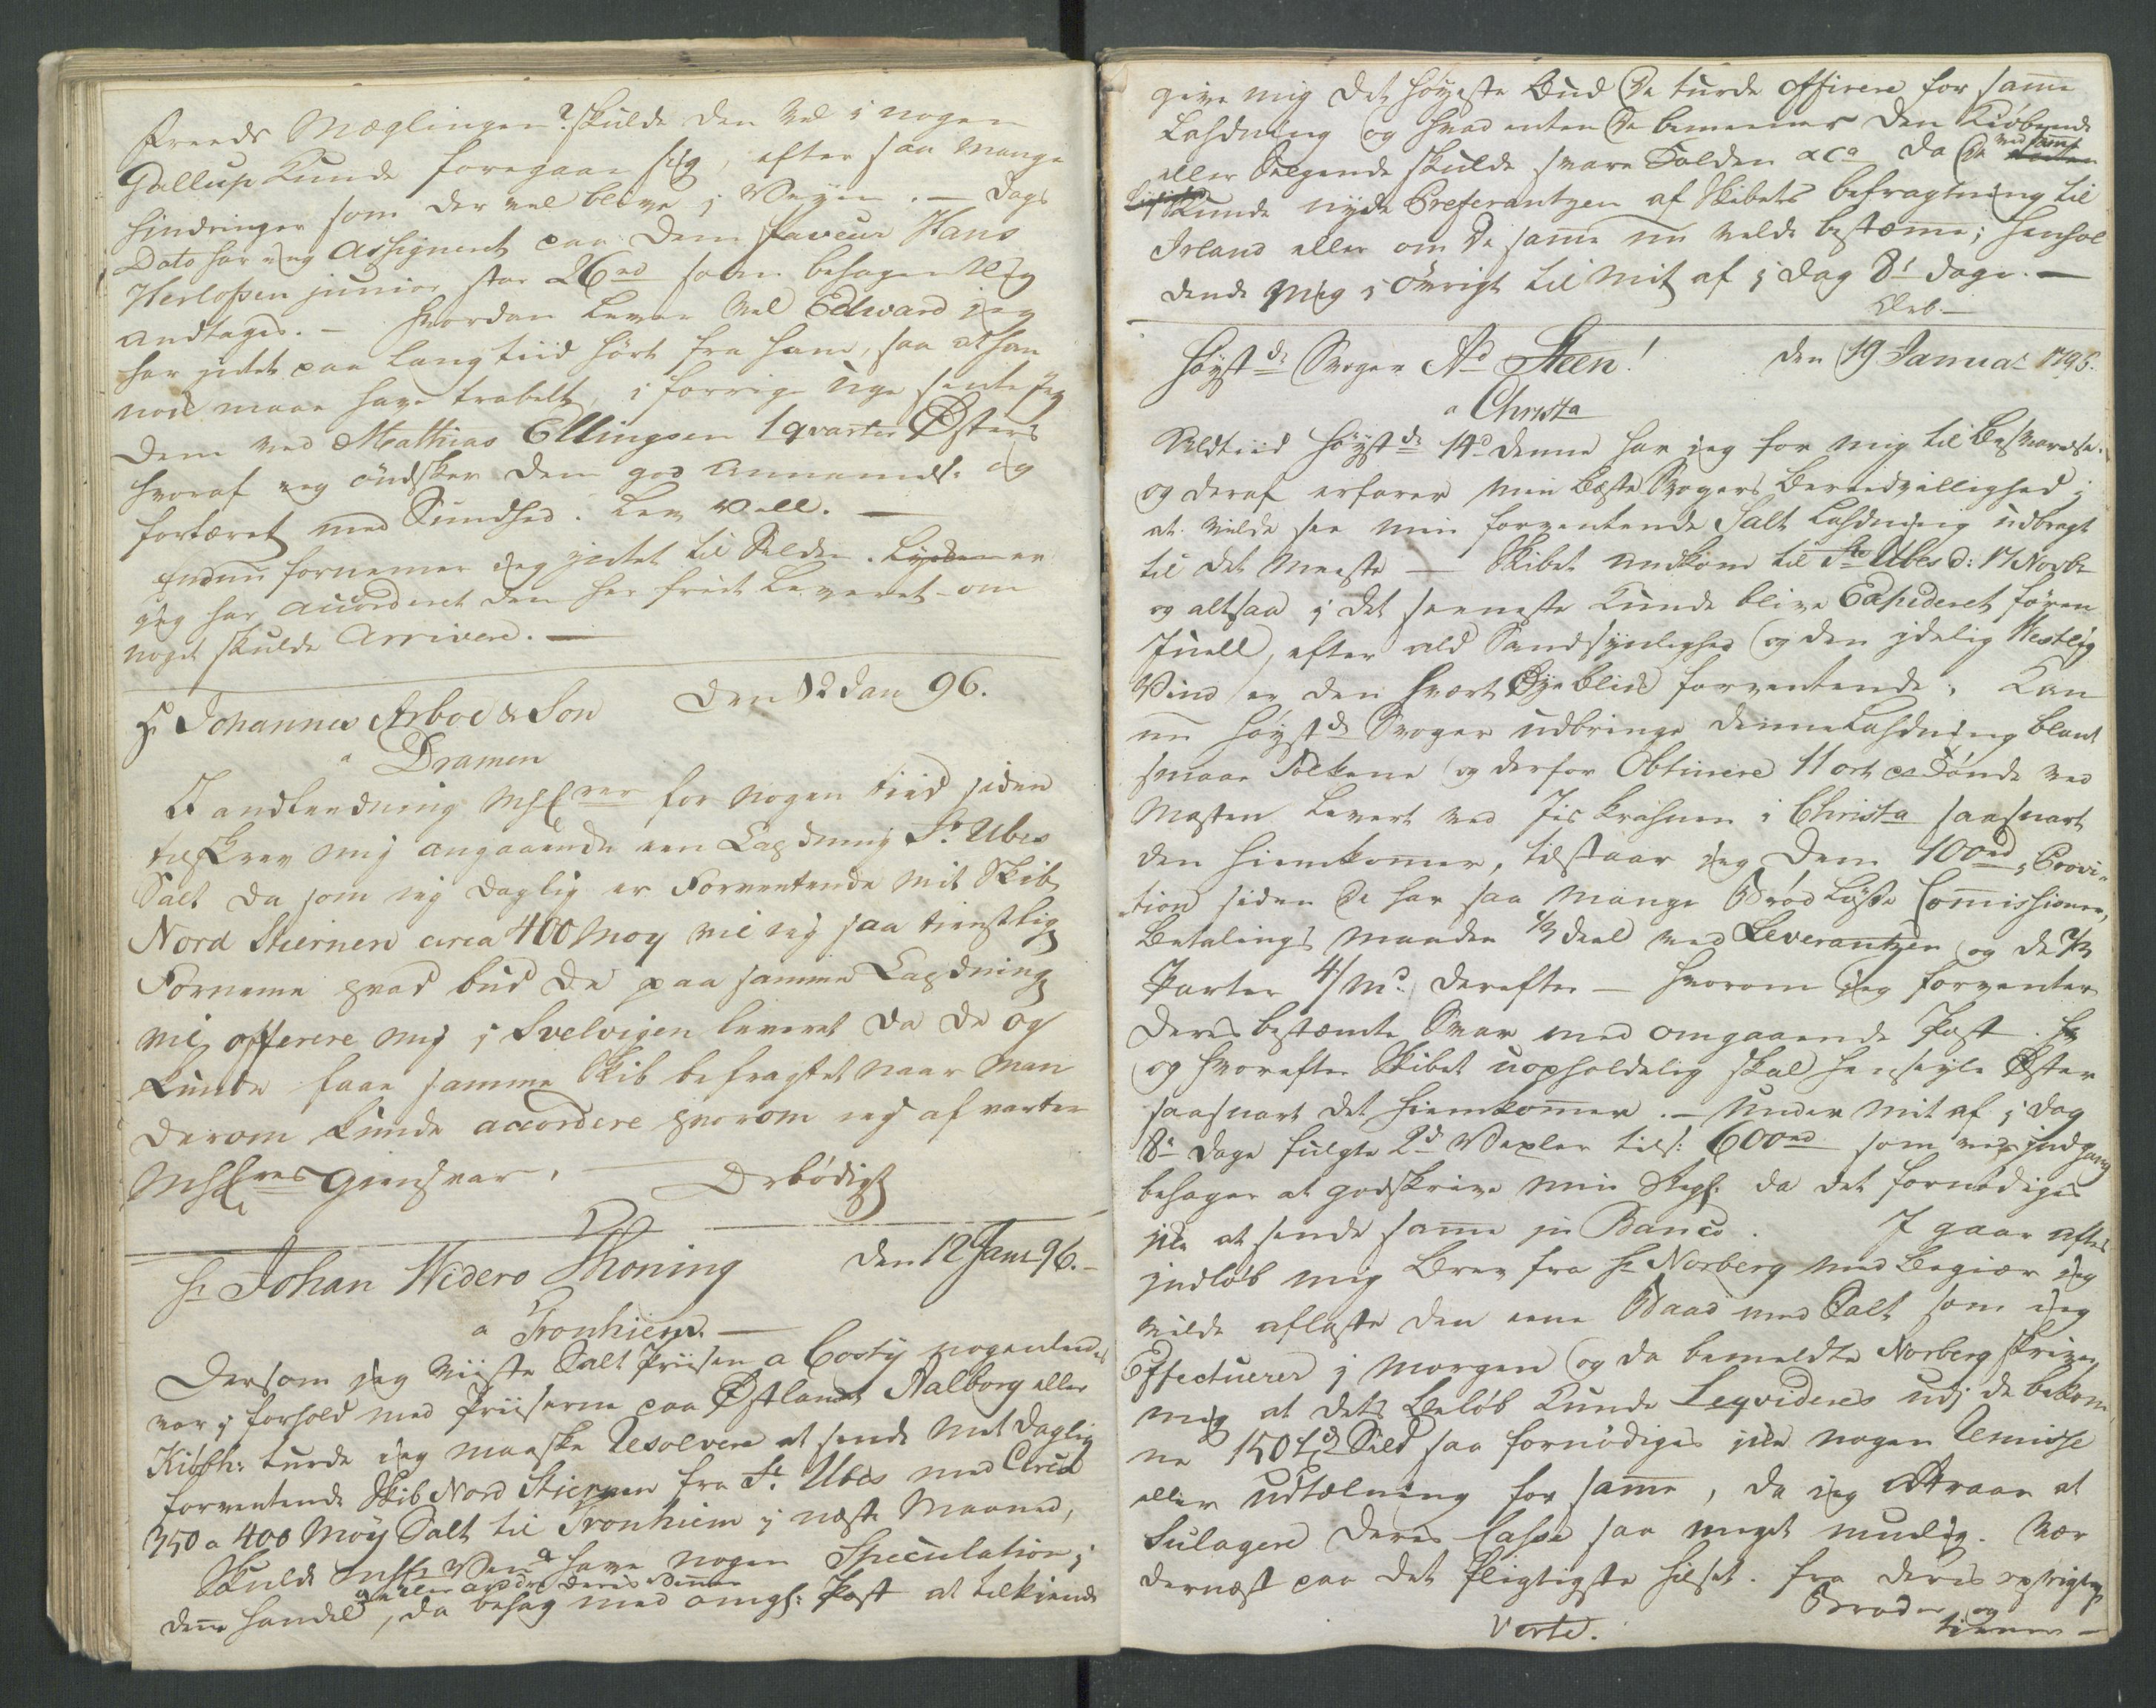 Freeds Mæglinger? skulde den vel i nogen
Gallup kunde foregaae sig, efter saa mange
hindringer som der vel blive i Veyen. — Dags
Dato har jeg Assigneret paa Dem faveur Hans
Herlofsen junior stor 26rd som behageligg
andtages. — hvordan lever vel Edward jeg
har jntet paa lang tiid hört fra ham, saa at han
nok maae have trabelt, i forrige Uge sente jeg
Dem med Mathias Ellingsen 1 qvarter Østers
hvoraf jeg öndsker dem god Annammels. og
fortæret med Sundhed. Lev vell. —
Endnu fornemer jeg jntet til Silden. Lysten er
jeg har accorderet den her frit Leveret om
noget skulde Arrivere. —
Hr Johannes Arboe & Son Den 12 Jan 96.
a Dramen
I andledning MHHrer for nogen tiid siden
tilskrev mig angaaende een Ladning St. Ubes
Salt da som jeg daglig er Forventende mit Skib
Nord Stiernen circa 400 Moy vil jeg saa tienstlig
Forneme hvad bud De paa samme Ladning
vil offerere mig i Svelvigen leveret da De og
kunde faae samme Skib befragtet naar man
derom kunde accordere hvorom jeg af varter
MHHres Giensvar. Ærbödigst
Hr Johan Widero Thoning den 12 Janr 96. —
a Tronhiem. —
Dersom jeg viiste Salt Priisen a Costy nogenledes
var i forhold med Priiserne paa Østlandet Aalborg eller
Kiöbh: turde jeg maaske Resolvere at sende mit daglig
forventende Skib Nord Stiernen fra St. Ubes med Circa
350 a 400 Möy Salt til Tronhiem i næste Maaned,
Skulde min Hr Ven have nogen Speculation i
eller andre deres Venner
denne handel, da behag med omgh: Post at tilkiende
give mig det höyeste Bud De turde offirere for samme
Ladning og hvad enten De bemeener den Kiöbende
eller Selgende skulde svare Tolden &ca da De ved samme
kunde nyde Preferantzen af Skibets befragtning til
Irland eller om De samme nu vilde bestæmme; henhol
dende mig i övrigt til Mit af i dag 8te dage. —
Ærb. —
Höystærede Svoger Ad Steen! den 19 Januar 1796.
a Christa
Altiid höystærede 14d denne har jeg for mig til besvarelse.
og deraf erfarer min beste Svogers Beredvillighed i
at vilde see min forventende Salt Ladning udbragt
til det meeste — Skibet andkom til St. Ubes d: 17 Novbr
og altsaa i det seeneste kunde blive Expederet fören
Juell, efter ald Sandsynlighed og den jdelig Westlig
Vind er den hvert Øyeblik forventende, kan
nu höystærede Svoger udbringe denne Ladning blant
smaae Folkene og derfor Obtinere 11 ort pr Tönde ved
Masten levert ved Jis krahnen i Christa saasnart
den hiemkommer, tilstaar jeg Dem 100rd i Provi-
tion siden De har saa mange Bröd Löste Comissioner,
Betalings Maaden 1/3 deel ved Leverantzen og de 2/3
Parter 4/M: derefter — hvorom jeg forventer
Deres bestemte Svar med omgaaende Post.
og hvorefter Skibet uopholdelig skal henseyle Øster
saasnart det hiemkommer. — Under mit af i dag
8te dage fulgte 2de Vexler tils: 600rd som ved jndgang
behager at godskrive min Regh: da det fornödiges
jkke at sende samme jn Banco. I gaar aftes
jndlöb mig Brev fra Hr Norberg med begiær jeg
vilde aflaste den eene Baad med Salt som jeg
Effectuerer i morgen og da bemeldte Norberg skriver
mig at dets Belöb kunde Leqvideres udj de bekom
ne 150 Td Sild saa fornödiges jkke nogen Remisse
eller udtælning for samme, da jeg Attraar at
Sulagere Deres Casse saa meget muelig. Vær
dernæst paa det pligtigste hilset. fra Deres oprigtige
Broder og
tiener —
Verte.